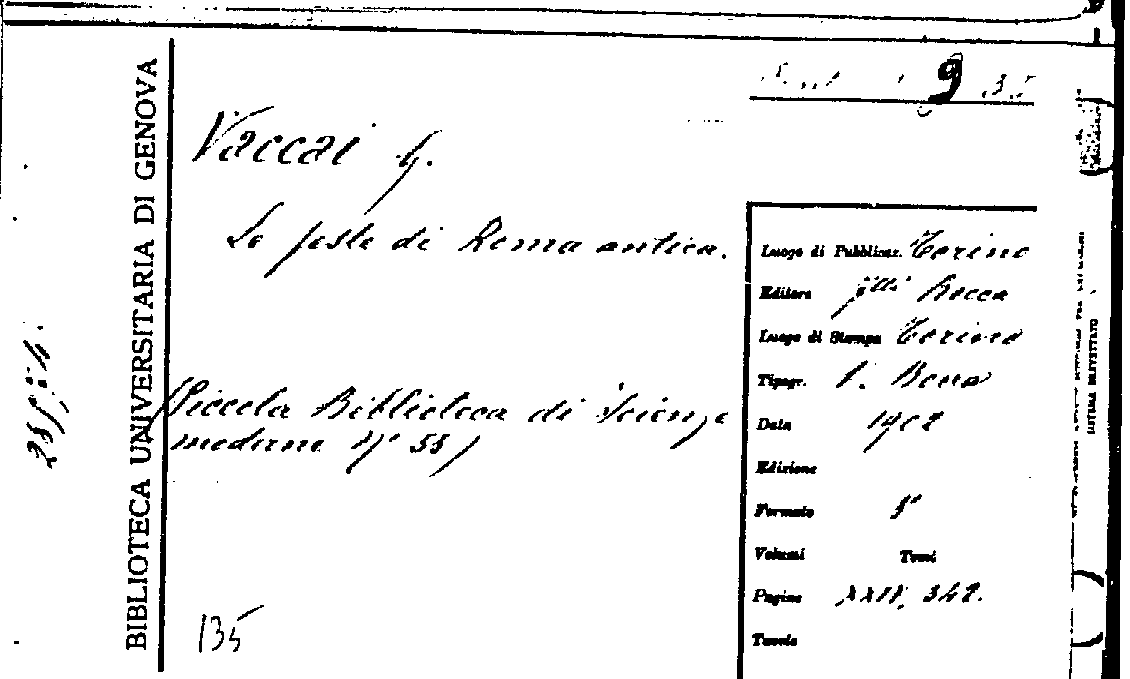 9
Vaccai G.
Le feste di Roma antica.
Luogo di Pubblicaz. Torino
Editore f.lli Bocca
Luogo di Stampa Torino
Tipogr. V. Bona
Data 1902
Edizione
Formato 8°
Volumi Tomi
Pagine XXIV, 342.
Tavole
(Piccola Biblioteca di Scienze
moderne N° 55)
135
BIBLIOTECA UNIVERSITARIA DI GENOVA